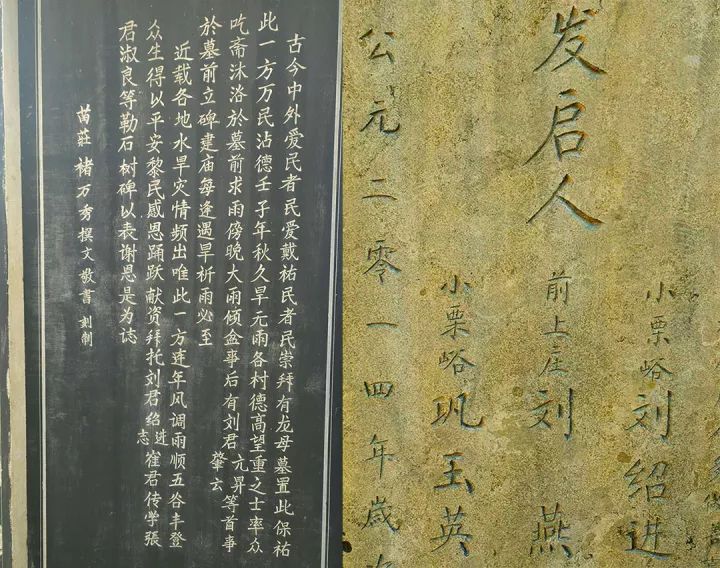 古今中外爱民者民爱戴祐民者民崇拜有龙母墓置此保祐
此一方万民沾德壬子年秋久旱无雨各村德高望重之士率众
吃斋沐浴於墓前求雨傍晚大雨倾盆事后有刘君亢昇肇云等首事
於墓前立碑建庙每逢遇旱祈雨必至
近载各地水旱灾情频出唯此一方连年风调雨顺五谷丰登
众生得以平安黎民感恩踊跃献资拜托刘君绍进志崔君传学張
君淑良等勒石树碑以表谢恩是为志
苗莊 褚万秀撰文敬書 刻制
小栗峪刘绍进
发启人 前上庄刘燕
小栗峪巩玉英
公元二零一四年歲